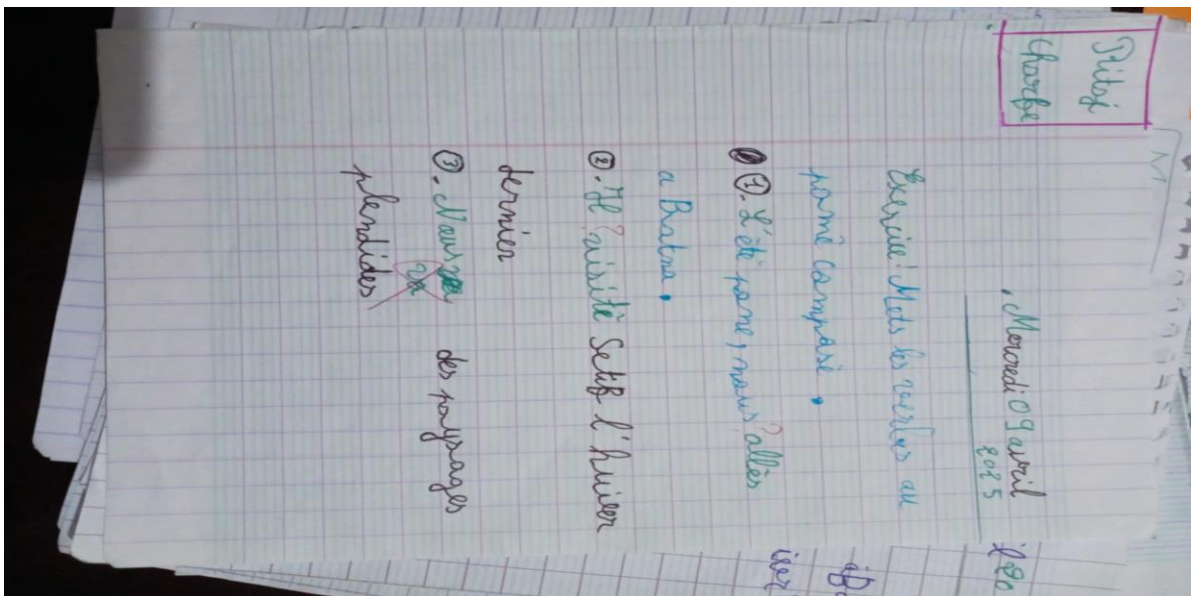 Ritaj
Charfe
M
. Mercredi 09 avril
2025
Exercice: Mets les verbes au
pamé Campasé .
① . L'été pane, nous ? allès
a Batna .
② . Il ? visitè Setif l'huiver
dernier
③ . Nous
va des paysages
plendides